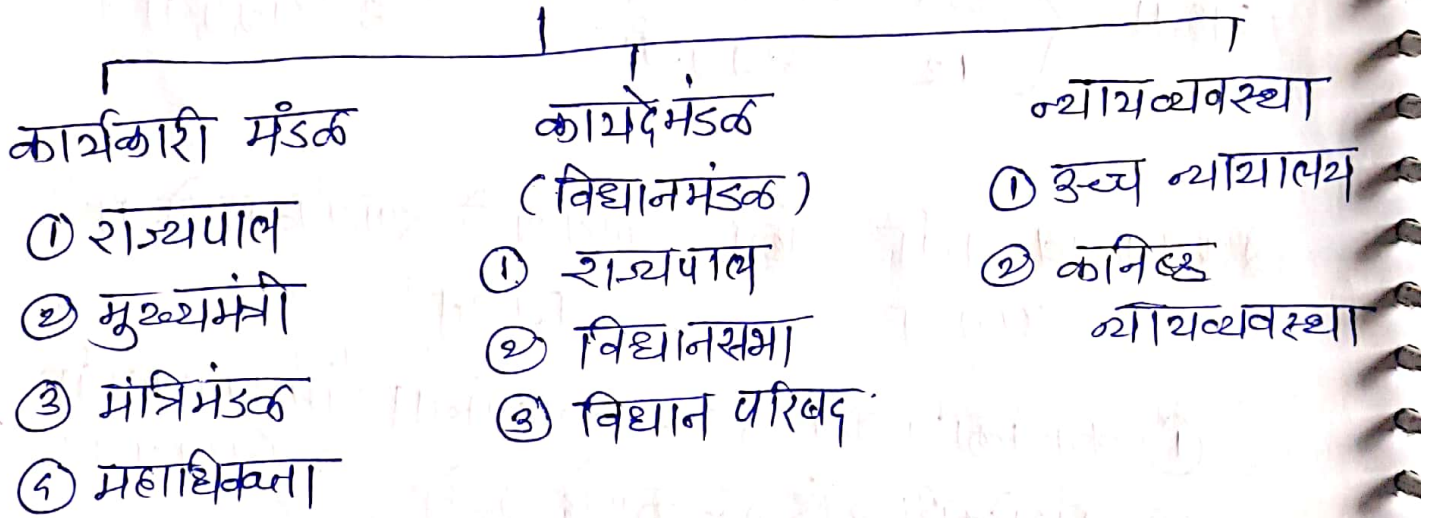 कार्यकारी मंडळ
① राज्यपाल
② मुख्यमंत्री
③ मंत्रिमंडळ
④ महाधिवक्ता
कायदेमंडळ
(विधानमंडळ)
① राज्यपाल
② विधानसभा
③ विधान परिषद
न्यायव्यवस्था
① उच्च न्यायालय
② कनिष्ठ
न्यायव्यवस्था